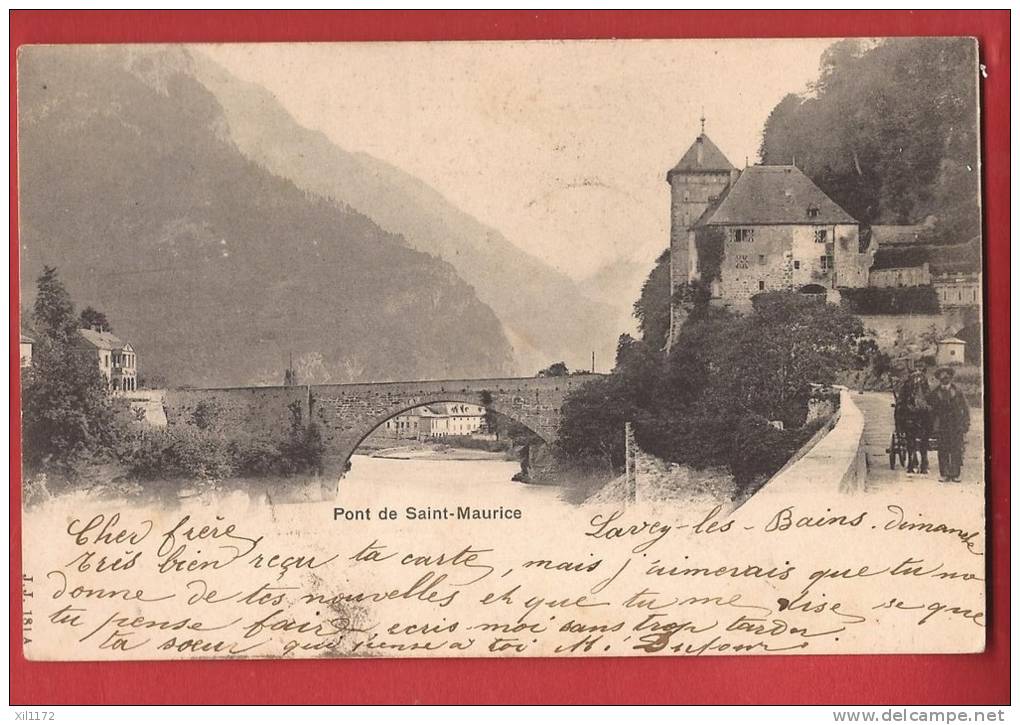 Pont de Saint-Maurice
Lavey-les-Bains. dimanche
Cher frère
Très bien reçu ta carte, mais j'aimerais que tu me
donne de tes nouvelles et que tu me dise se que
tu pense faire ecris-moi sans trop tarder.
ta sœur qui pense à toi M. Dufour
J.J. 181A
xil1172
www.delcampe.net